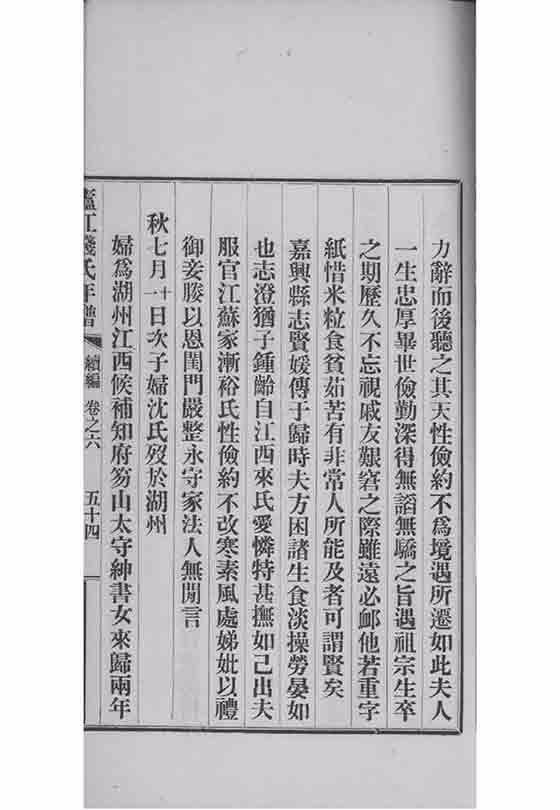 力辭而後聽之其天性儉約不爲境遇所遷如此夫人
一生忠厚畢世儉勤深得無諂無驕之旨遇祖宗生卒
之期歷久不忘視戚友艱窘之際雖遠必卹他若重字
紙惜米粒食貧茹苦有非常人所能及者可謂賢矣
嘉興縣志賢媛傳于歸時夫方困諸生食淡操勞晏如
也志澄猶子鍾齡自江西來氏愛憐特甚撫如己出夫
服官江蘇家漸裕氏性儉約不改寒素風處娣姒以禮
御妾媵以恩閨門嚴整永守家法人無閒言
秋七月十一日次子婦沈氏歿於湖州
婦爲湖州江西候補知府笏山太守紳書女來歸兩年
廬江錢氏年譜 續編 卷之六 五十四